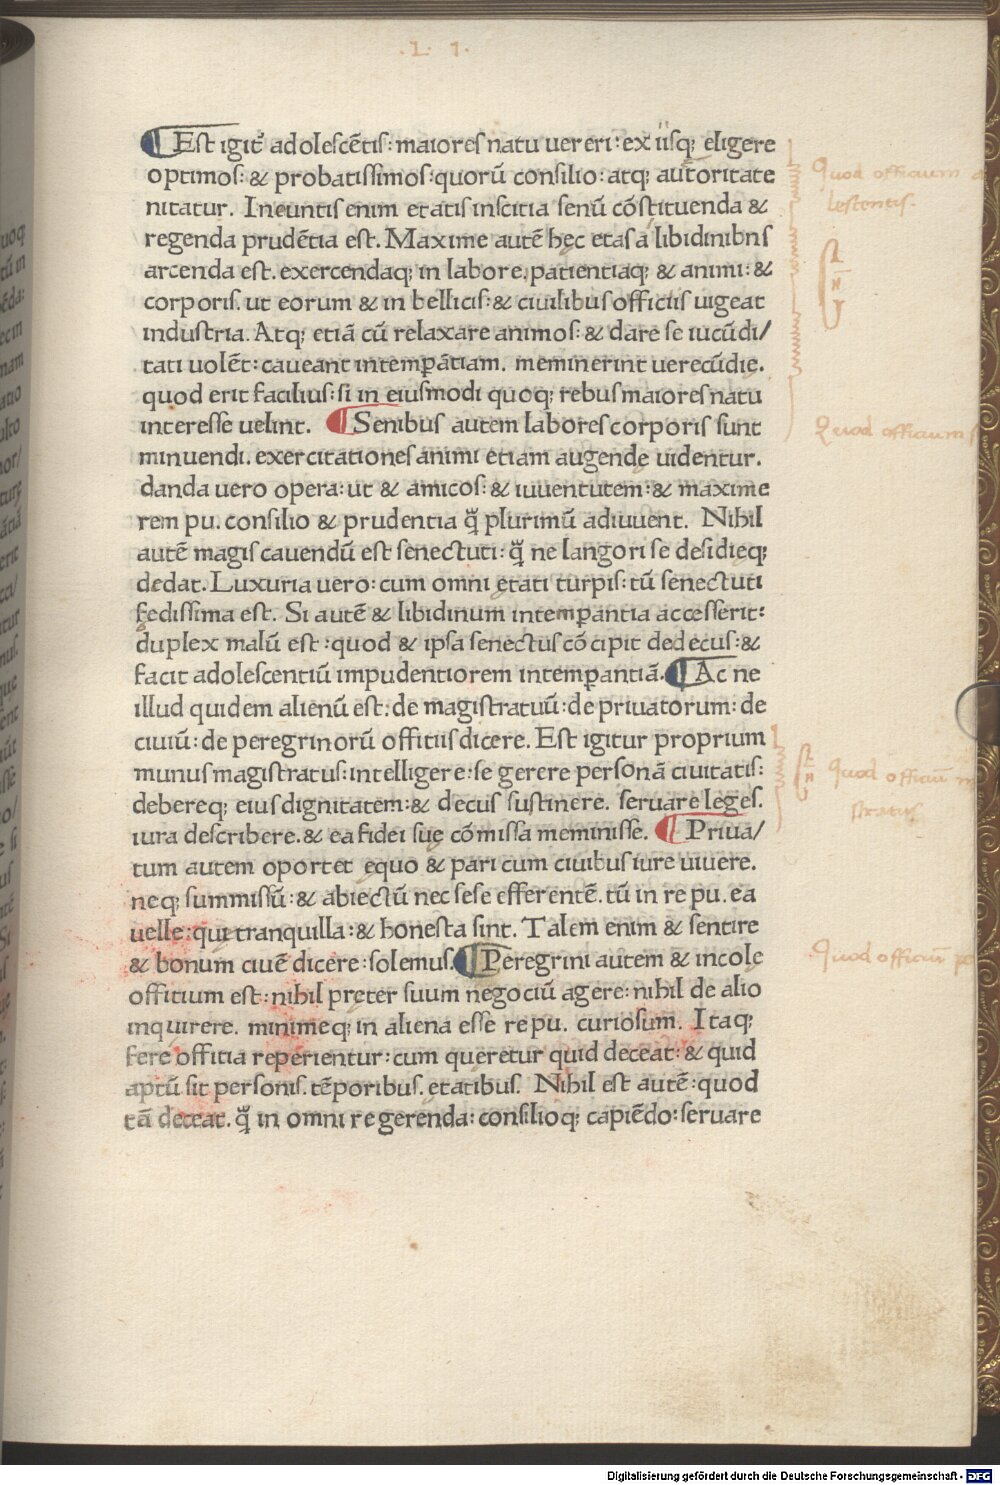 .L. 1.
¶ Est igit᷑ adolescẽtis: maiores natu uereri: ex iisq; eligere
optimos: & probatissimos: quorũ consilio: atq; autoritate
nitatur. Ineuntis enim etatis inscitia senũ cõstituenda &
regenda prudẽtia est. Maxime autẽ hęc etas a libidinibns
arcenda est. exercendaq; in labore, patientiaq; & animi: &
corporis. ut eorum & in bellicis: & ciuilibus officiis uigeat
industria. Atq; etiã cũ relaxare animos: & dare se iucũdi/
tati uolẽt: caueant intemꝑãtiam. meminerint uerecũdię.
quod erit facilius: si in eiusmodi quoq; rebus maiores natu
interesse uelint. ¶ Senibus autem labores corporis sunt
minuendi. exercitationes animi etiam augendę uidentur.
danda uero opera: ut & amicos: & iuuentutem: & maxime
rem pu. consilio & prudentia q̃ plurimũ adiuuent. Nihil
autẽ magis cauendũ est senectuti: q̃ ne langori se desidięq;
dedat. Luxuria uero: cum omni ętati turpis: tũ senectuti
fędissima est. Si autẽ & libidinum intemꝑantia accesserit:
duplex malũ est: quod & ipsa senectus cõcipit dedecus: &
facit adolescentiũ impudentiorem intemꝑantiã. ¶ Ac ne
illud quidem alienũ est: de magistratuũ: de priuatorum: de
ciuiũ: de peregrinorũ offitiis dicere. Est igitur proprium
munus magistratus: intelligere: se gerere personã ciuitatis:
debereq; eius dignitatem: & decus sustinere. seruare leges.
iura describere. & ea fidei suę cõmissa meminisse. ¶ Priua/
tum autem oportet ęquo & pari cum ciuibus iure uiuere.
neq; summissũ: & abiectũ nec sese efferentẽ. tũ in re pu. ea
uelle: qui tranquilla: & honesta sint. Talem enim & sentire
& bonum ciuẽ dicere: solemus. ¶ Peregrini autem & incolę
offitium est: nihil pręter suum negociũ agere: nihil de alio
inquirere. minimeq; in aliena esse re pu. curiosum. Itaq;
fere offitia reperientur: cum queretur quid deceat: & quid
aptũ sit personis. tẽporibus. ętatibus. Nihil est autẽ: quod
tã deceat. q̃ in omni re gerenda: consilioq; capiẽdo: seruare
Quod officium
lescentis.
Quod officium
Quod officiũ
stratus
Quod officiũ
Digitalisierung gefördert durch die Deutsche Forschungsgemeinschaft - DFG